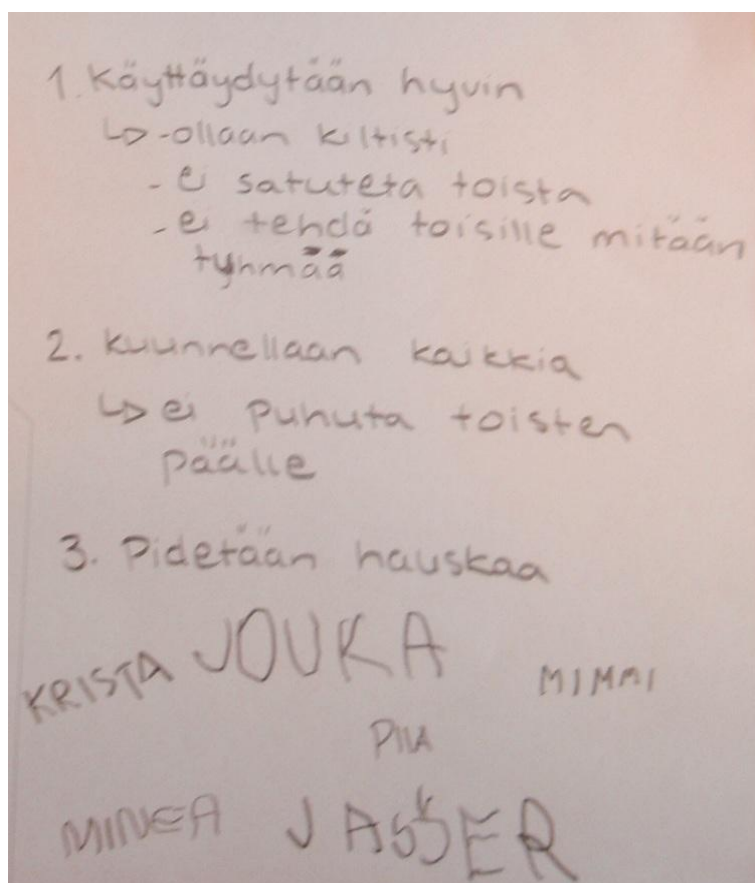 1. Käyttäydytään hyvin
↳ -ollaan kiltisti
- ei satuteta toista
- ei tehdä toisille mitään
tyhmää
2. kuunnellaan kaikkia
↳ ei puhuta toisten
päälle
3. Pidetään hauskaa
KRISTA JOUKA MIMMI
PIIA
MINEA JASSER